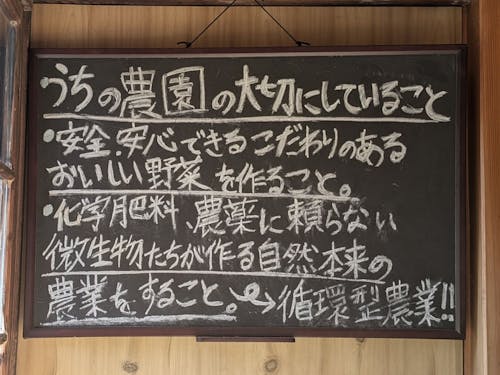 うちの農園の大切にしていること
・安全.安心できるこだわりのある
おいしい野菜を作ること。
・化学肥料、農薬に頼らない
微生物たちが作る自然本来の
農業をすること。→循環型農業!!